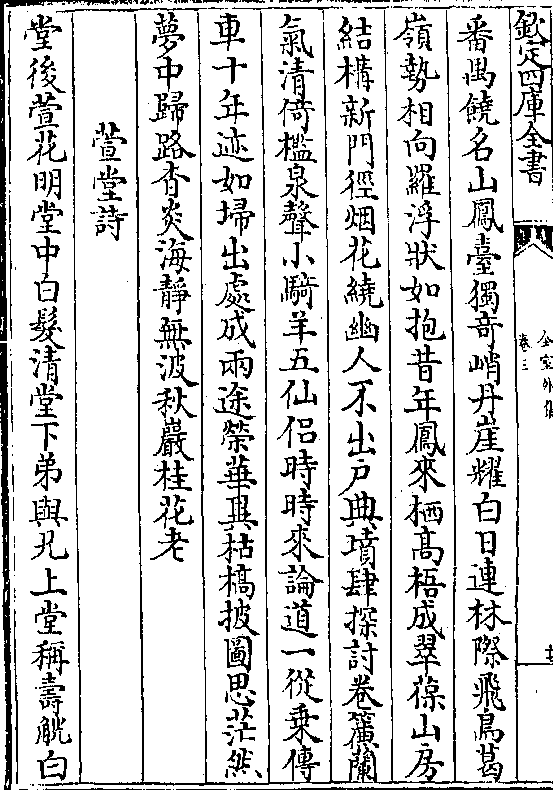 欽定四庫全書
全室外集
卷三
番禺饒名山鳳臺獨奇峭丹崖耀白日連林際飛鳥葛
嶺勢相向羅浮狀如抱昔年鳳來栖髙梧成翠葆山房
結構新門徑烟花繞幽人不出户典墳肆探討卷簾蘭
氣清倚檻泉聲小騎羊五仙侣時時來論道一從乗傳
車十年迹如埽出處成兩途榮華異枯槁披圖思茫然
夢中歸路杳炎海靜無波秋巖桂花老
萱堂詩
堂後萱花明堂中白髮清堂下弟與兄上堂稱壽觥白